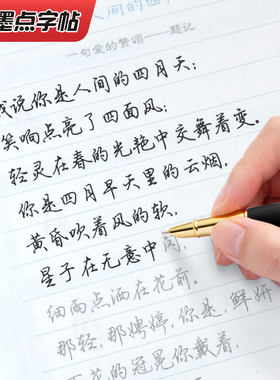 墨点字帖
人间的四
一句爱的赞颂——题记
我说你是人间的四月天;
笑响点亮了四面风;
轻灵在春的光艳中交舞着变。
你是四月早天里的云烟,
黄昏吹着风的软,
星子在无意中闪,
细雨点洒在花前。
那轻,那娉婷,你是,鲜妍
花的冠冕你戴着,